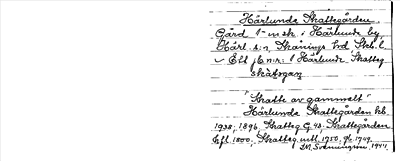 Härlunda Skattegården.
Gård 1 msk. i Härlunda by,
Härl. s:n, Skånings hd Skbl.
Eft. E.n:r: 1 Härlunda Skatteg
skàtəgan
"Skatte av gammalt"
Härlunda Skattegården kb.
1938, 1896. Skatteg. G 43. Skattegården
Efl. 1800. Skatteg. utl. 1750, gk 1749.
1941.